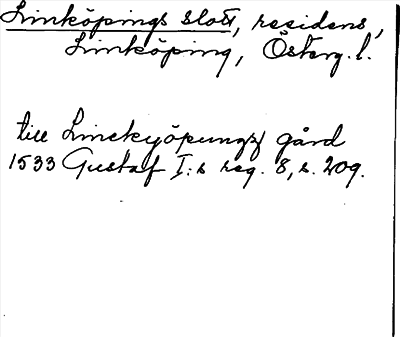 Linköpings slott, residens,
Linköping, Österg. l.
till Linckyöpungz gård
1533 Gustaf I:s reg. 8, s. 209.